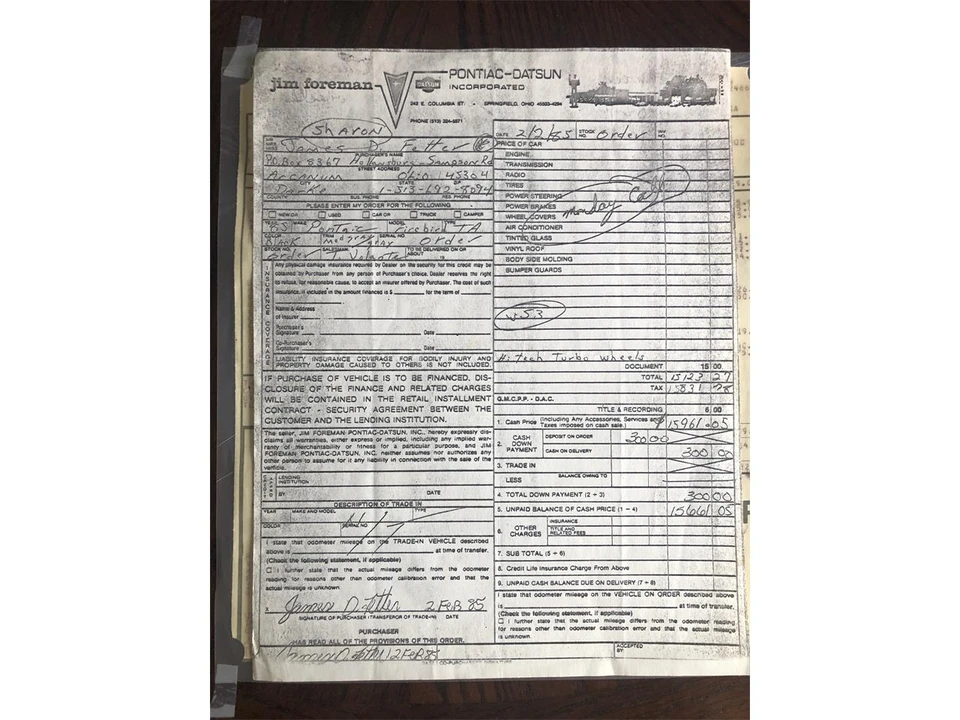 jim foreman
PONTIAC-DATSUN
DATSUN
INCORPORATED
242 E. COLUMBIA ST. - SPRINGFIELD, OHIO 45503-4294
PHONE (513) 324-5571
Sharon
DATE 2/2/85 STOCK NO. Order INV. NO.
James D. Fetter
PURCHASER'S NAME
P.O. Box 8367 Hollansburg-Sampson Rd
STREET ADDRESS
Arcanum Ohio 45304
CITY STATE ZIP
Darke 1-513-692-8094
COUNTY BUS. PHONE RES. PHONE
PLEASE ENTER MY ORDER FOR THE FOLLOWING
NEW OR USED CAR OR TRUCK CAMPER
YEAR 85 MAKE Pontiac MODEL Firebird TYPE TA
COLOR Black TRIM Med gray SERIAL NO. order
gray
STOCK NO. order SALESMAN T. Volante TO BE DELIVERED ON OR ABOUT 19
INSURANCE COVERAGE
Any physical damage insurance required by Dealer on the security for this credit may be
obtained by Purchaser from any person of Purchaser's choice. Dealer reserves the right
to refuse, for reasonable cause, to accept an insurer offered by Purchaser. The cost of such
insurance, if included in the amount financed is $ for the term of
Name & Address
of Insurer
Purchaser's
Signature Date
Co-Purchaser's
Signature Date
LIABILITY INSURANCE COVERAGE FOR BODILY INJURY AND
PROPERTY DAMAGE CAUSED TO OTHERS IS NOT INCLUDED.
IF PURCHASE OF VEHICLE IS TO BE FINANCED, DIS-
CLOSURE OF THE FINANCE AND RELATED CHARGES
WILL BE CONTAINED IN THE RETAIL INSTALLMENT
CONTRACT - SECURITY AGREEMENT BETWEEN THE
CUSTOMER AND THE LENDING INSTITUTION.
The seller, JIM FOREMAN PONTIAC-DATSUN, INC., hereby expressly dis-
claims all warranties, either express or implied, including any implied war-
ranty of merchantability or fitness for a particular purpose, and JIM
FOREMAN PONTIAC-DATSUN, INC. neither assumes nor authorizes any
other person to assume for it any liability in connection with the sale of the
vehicle.
LENDING
INSTITUTION
BY DATE
DESCRIPTION OF TRADE IN
YEAR MAKE AND MODEL TYPE
COLOR SERIAL NO.
I state that odometer mileage on the TRADE-IN VEHICLE described
above is at time of transfer.
(Check the following statement, if applicable)
I further state that the actual mileage differs from the odometer
reading for reasons other than odometer calibration error and that the actual
mileage is unknown.
X James D. Fetter 2 Feb 85
SIGNATURE OF PURCHASER (TRANSFEROR OF TRADE-IN) DATE
PURCHASER
HAS READ ALL OF THE PROVISIONS OF THIS ORDER.
James D. Fetter 2 Feb 85
PRICE OF CAR
ENGINE
TRANSMISSION
RADIO
TIRES
POWER STEERING
POWER BRAKES
WHEEL COVERS
monday
AIR CONDITIONER
TINTED GLASS
VINYL ROOF
BODY SIDE MOLDING
BUMPER GUARDS
W53
Hi tech Turbo wheels
DOCUMENT 15 00
TOTAL 15123 27
TAX 831 78
G.M.C.P.P. - D.A.C.
TITLE & RECORDING 6 00
1. Cash Price (Including Any Accessories, Services and Taxes imposed on cash sale.) $ 15961.05
2. CASH DOWN PAYMENT
DEPOSIT ON ORDER 300 00
CASH ON DELIVERY
300 00
3. TRADE IN
LESS BALANCE OWING TO
4. TOTAL DOWN PAYMENT (2 + 3) 300 00
5. UNPAID BALANCE OF CASH PRICE (1 - 4) 15661 05
6. OTHER CHARGES
INSURANCE
TITLE AND RELATED FEES
7. SUB TOTAL (5 + 6)
8. Credit Life Insurance Charge From Above
9. UNPAID CASH BALANCE DUE ON DELIVERY (7 + 8)
I state that odometer mileage on the VEHICLE ON ORDER described above
is at time of transfer.
(Check the following statement, if applicable)
I further state that the actual mileage differs from the odometer reading
for reasons other than odometer calibration error and that the actual mileage
is unknown.
ACCEPTED
BY: